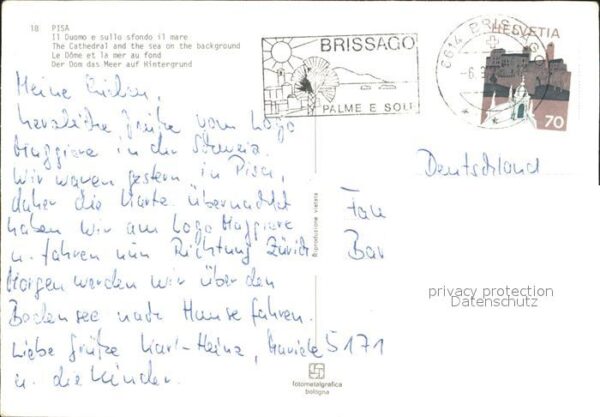 18 PISA
Il Duomo e sullo sfondo il mare
The Cathedral and the sea on the background
Le Dôme et la mer au fond
Der Dom das Meer auf Hintergrund
BRISSAGO
PALME E SOLE
6614 BRISSAGO
-6.9
HELVETIA
70
Meine
herzliche Grüße vom Lago
Maggiore in der Schweiz.
Wir waren gestern in Pisa,
daher die Karte. Übernachtet
haben wir am Lago Maggiore
u. fahren nun Richtung Zürich.
Morgen werden wir über den
Bodensee nach Hause fahren.
Liebe Grüße Karl-Heinz,
u. die Kinder.
Deutschland
Bar
5171
Riproduzione vietata
fotometalgrafica
bologna
privacy protection
Datenschutz